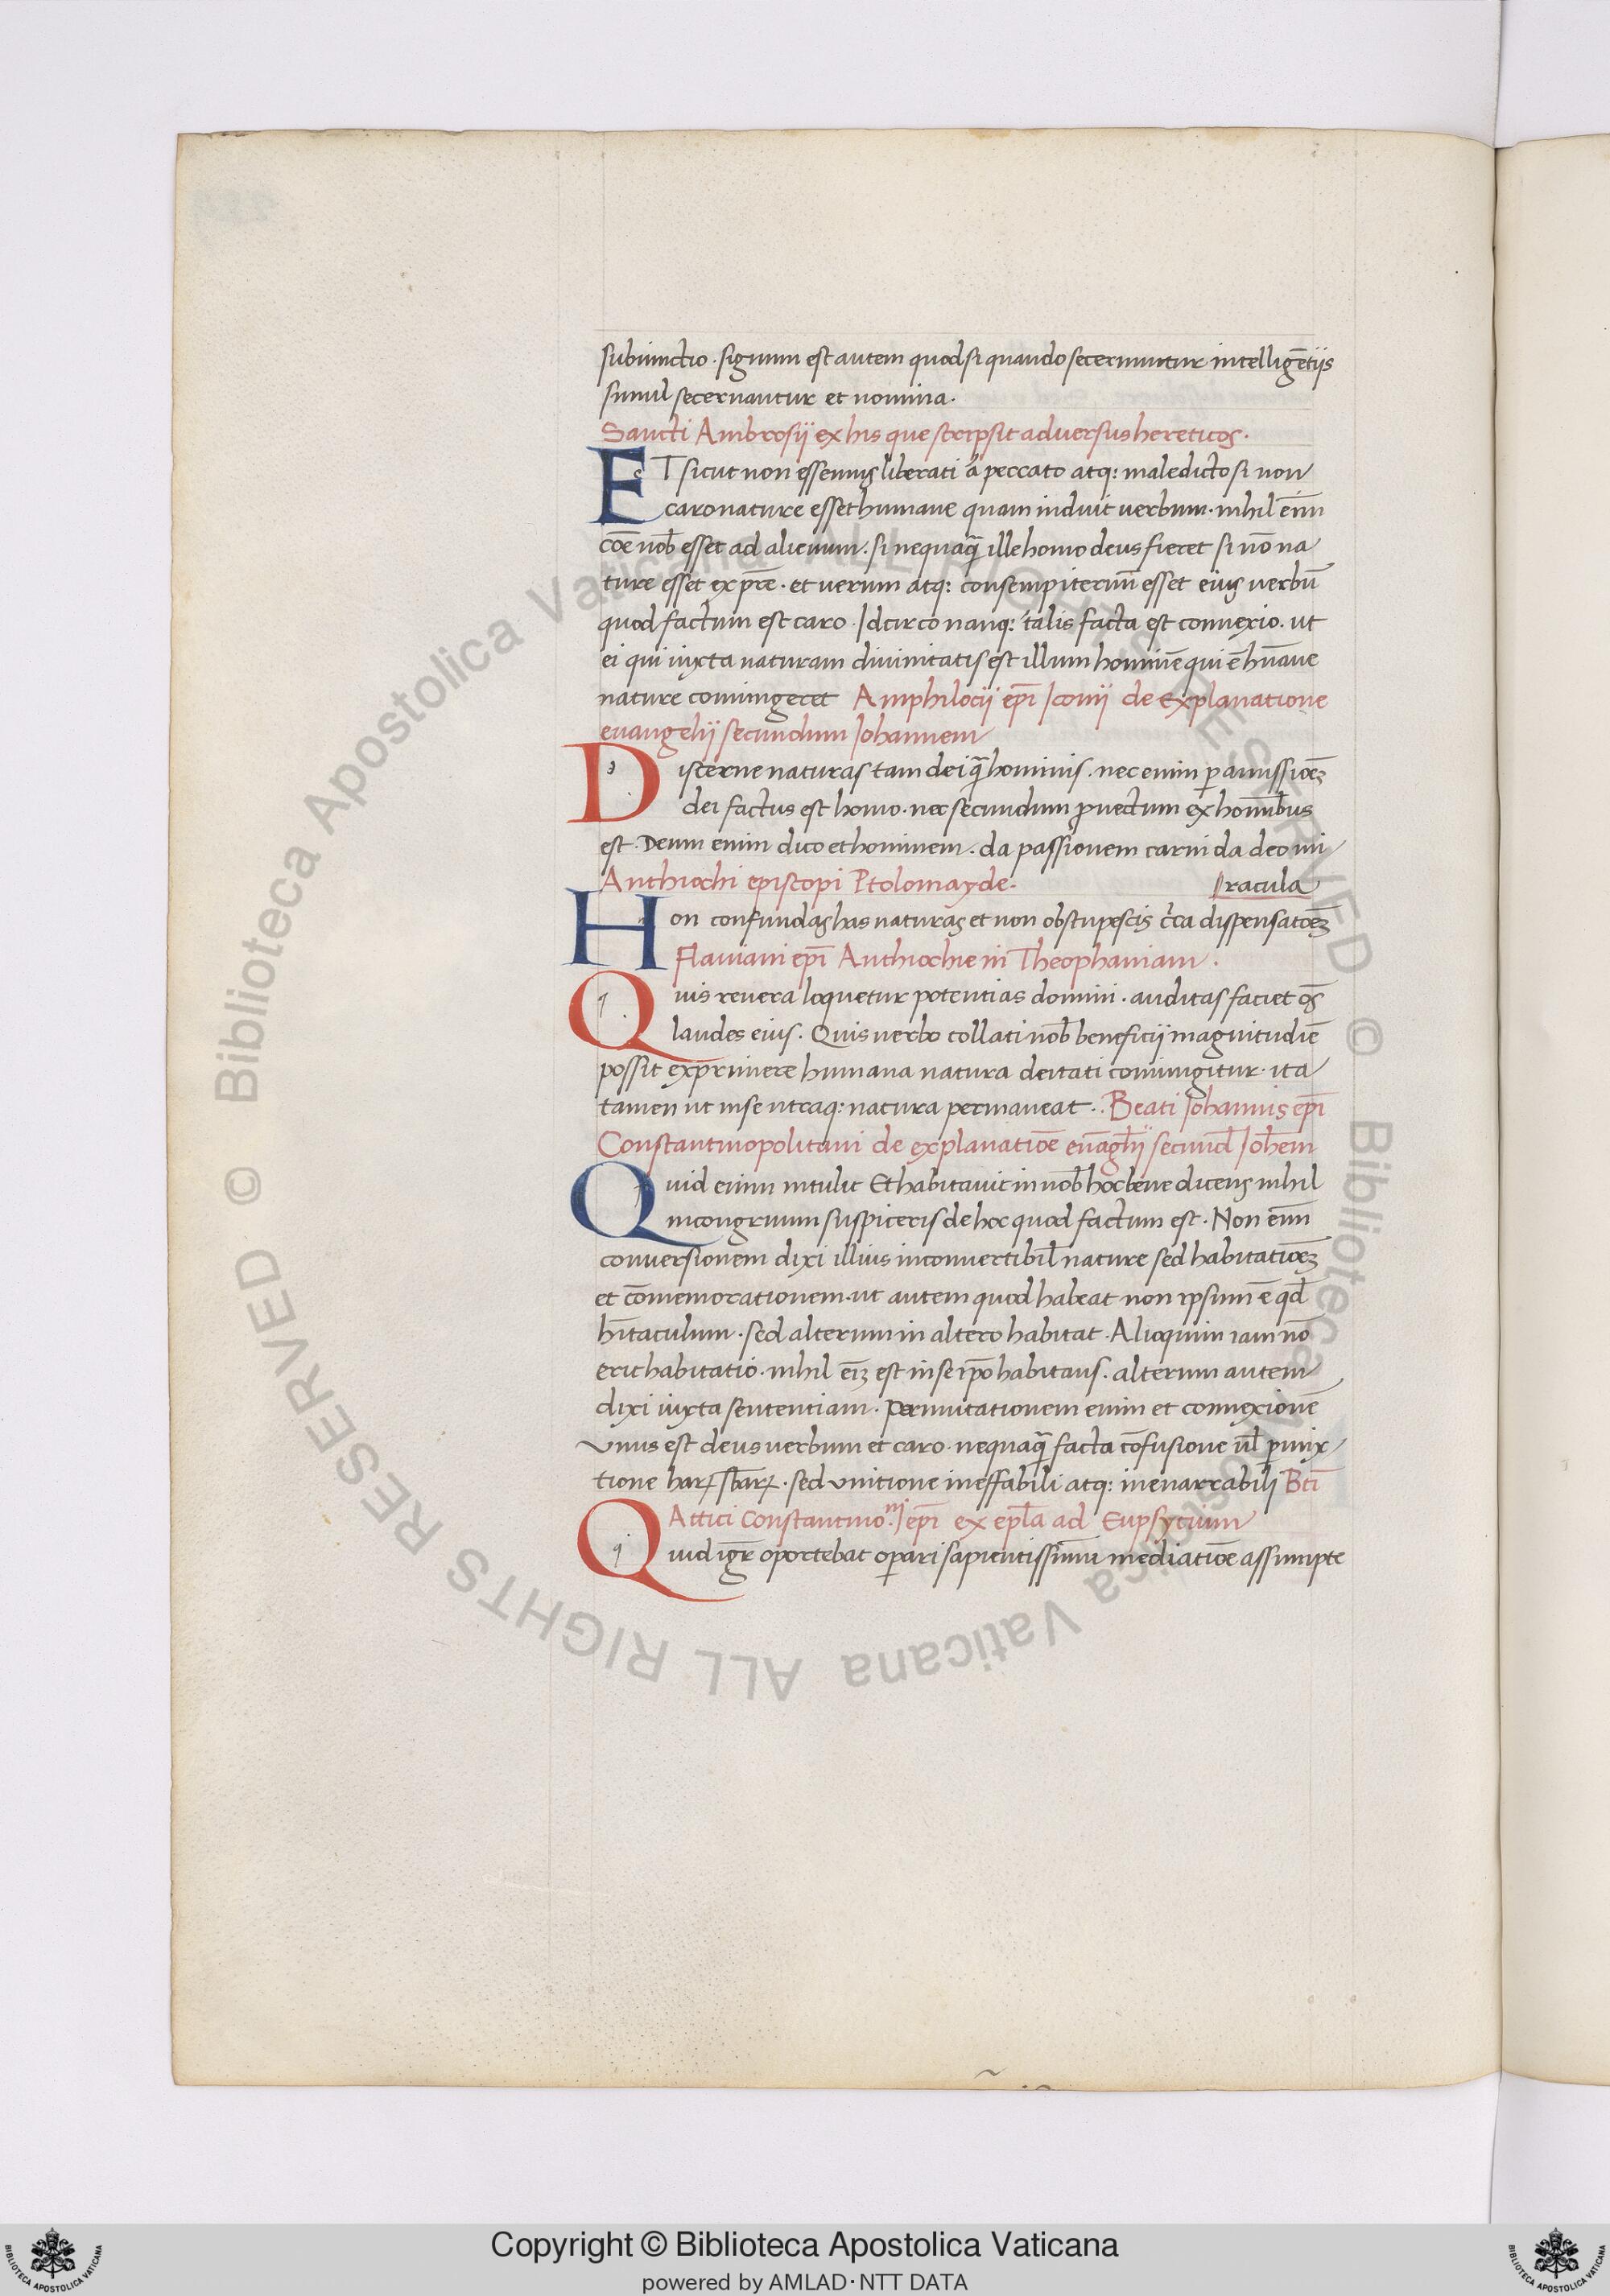 subiunctio. signum est autem quod si quando secernuntur intelligẽtijs
simul secernantur et nomina.
Sancti Ambrosij ex his que scripsit aduersus hereticos.
ET sicut non essemus liberati a peccato atq: maledicto si non
caro nature esset humane quam induit uerbum. nihil eīm
cōe nob̄ esset ad alienum. si nequaq̄ ille homo deus fieret si nō na
ture esset ex pr̄e. et uerum atq: consempiternū esset eius uerbū
quod factum est caro. Idcirco nanq: talis facta est connexio. ut
ei qui iuxta naturam diuinitatis est illum hominē qui ē hūane
nature coniungeret Amphilocij ep̄i Iconij de explanatione
euangelij secundum Iohannem
Discerne naturas tam dei q̄ hominis. nec enim ꝑ amissiōeꝫ
dei factus est homo. nec secundum ꝓuectum ex homībus
est. Deum enim dico et hominem. da passionem carni da deo mi
Anthiochi episcopi Ptolomayde. racula
Hon confundas has naturas et non obstupescis c̄ca dispensatōeꝫ
Flauiani ep̄i Anthiochie in Theophaniam.
Quis reuera loquetur potentias domini. auditas faciet oēs
laudes eius. Quis uerbo collati nob̄ beneficij magnitudīe
possit exprimere humana natura deitati coniungitur. ita
tamen ut in se utraq: natura permaneat. Beati Iohannis ep̄i
Constantinopolitani de explanatiōe euāgh̄ij secund̄ Ioh̄em
Quid enim intulit Et habitauit in nob̄ hoc bene dicens nihil
incongruum suspiceris de hoc quod factum est. Non eīm
conuersionem dixi illius inconuertibil̄ nature sed habitatiōeꝫ
et cōmemorationem. ut autem quod habeat non ipsum ē qd̄
hītaculum. sed alterum in altero habitat. Alioquin iam nō
erit habitatio. nihil eīꝫ est in se ip̄o habitans. alterum autem
dixi iuxta sententiam. Permutationem enim et connexionē
unus est deus uerbum et caro. nequaq̄ facta cōfusione ūl ꝑmix
tione haꝝ sb̄aꝝ. sed unitione ineffabili atq: inenarrabili Bt̄i
Attici Constantino.ni ep̄i ex epl̄a ad Eupsytium
Quid igr̄ oportebat oꝑari sapientissimū mediatiōe assumpte
Copyright © Biblioteca Apostolica Vaticana
powered by AMLAD·NTT DATA